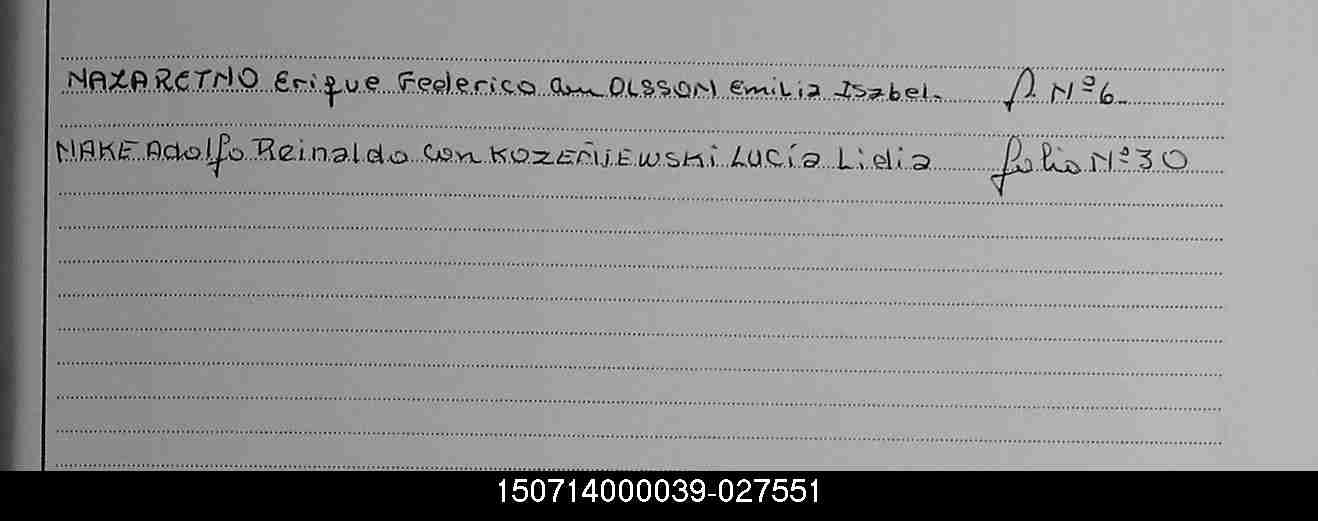 NAZARETNO Erique Federico con OLSSON Emilia Isabel. f. Nº6
NAKE Adolfo Reinaldo con KOZEÑIJEWSKI Lucía Lidia folio Nº30
150714000039-027551